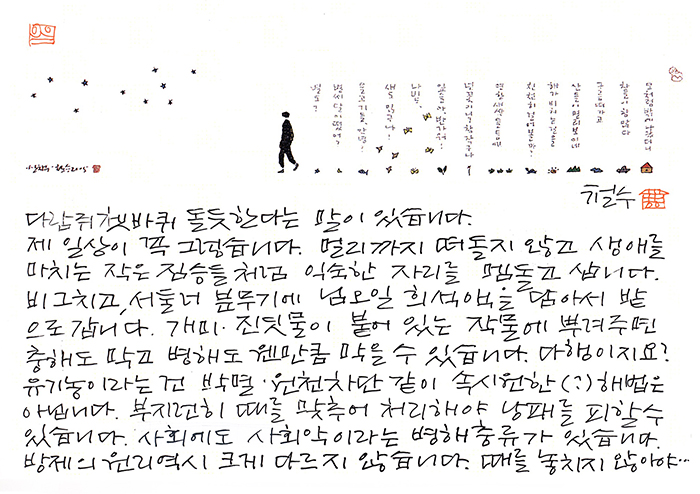 하늘이 참 맑다
구름 떠가고
산들이 멀리 보이네
나비,
별도?
철수
다람쥐 쳇바퀴 돌듯한다는 말이 있습니다.
제 일상이 꼭 그렇습니다. 멀리까지 떠돌지 않고 생애를
마치는 작은 짐승들처럼 익숙한 자리를 맴돌고 삽니다.
비 그치고, 서둘러 분무기에 님오일 희석액을 담아서 밭
으로 갑니다. 개미·진딧물이 붙어 있는 작물에 뿌려주면
충해도 막고 병해도 웬만큼 막을 수 있습니다. 다행이지요?
유기농이라는 건 박멸·원천차단 같이 속시원한(?) 해법은
아닙니다. 부지런히 때를 맞추어 처리해야 낭패를 피할 수
있습니다. 사회에도 사회악이라는 병해충류가 있습니다.
방제의 원리 역시 크게 다르지 않습니다. 때를 놓치지 않아야…